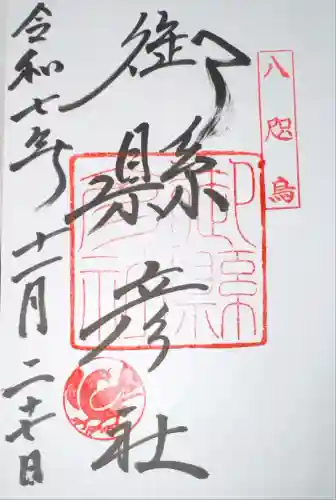 八咫烏
御縣彦社
令和七年十一月二十七日